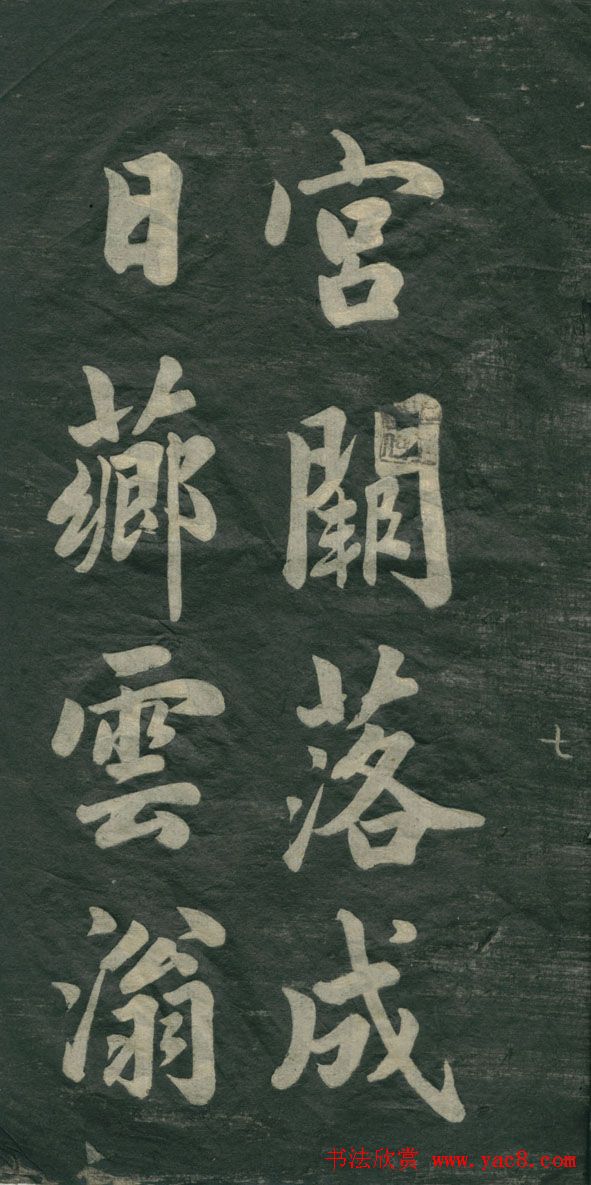 宮闕落成
日薌雲滃
七
书法欣赏 www.yac8.com